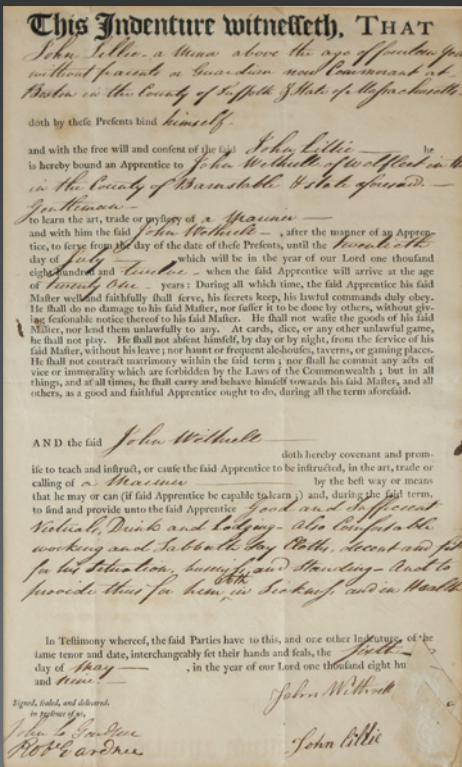 This Indenture witnesseth, THAT
John Lillie - a Minor above the age of fourteen
without parents or Guardian now Commorant at
Boston in the County of Suffolk & State of Massachusetts
doth by these Presents bind himself.
and with the free will and consent of the said John Lillie he
is hereby bound an Apprentice to John Wethrell of Wellfleet in
in the County of Barnstable & state aforesaid. —
Gentleman -
to learn the art, trade or mystery of a Mariner —
and with him the said John Wethrell - , after the manner of an Appren-
tice, to serve from the day of the date of these Presents, until the twentieth
day of July which will be in the year of our Lord one thousand
eight hundred and twelve - when the said Apprentice will arrive at the age
of twenty One - years : During all which time, the said Apprentice his said
Master well and faithfully shall serve, his secrets keep, his lawful commands duly obey.
He shall do no damage to his said Master, nor suffer it to be done by others, without giv-
ing seasonable notice thereof to his said Master. He shall not waste the goods of his said
Master, nor lend them unlawfully to any. At cards, dice, or any other unlawful game,
he shall not play. He shall not absent himself, by day or by night, from the service of his
said Master, without his leave ; nor haunt or frequent ale-houses, taverns, or gaming places.
He shall not contract matrimony within the said term ; nor shall he commit any acts of
vice or immorality which are forbidden by the Laws of the Commonwealth ; but in all
things, and at all times, he shall carry and behave himself towards his said Master, and all
others, as a good and faithful Apprentice ought to do, during all the term aforesaid.
AND the said John Wethrell
doth hereby covenant and prom-
ise to teach and instruct, or cause the said Apprentice to be instructed, in the art, trade or
calling of a Mariner by the best way or means
that he may or can (if said Apprentice be capable to learn ;) and, during the said term,
to find and provide unto the said Apprentice Good and Sufficient
Victuals, Drink and Lodging - Also Comfortable
working and Sabbath Day Cloths, decent and fit
for his Situation, and Standing - And to
provide thus for him both in Sickness and in Health
In Testimony whereof, the said Parties have to this, and one other Indenture, of the
same tenor and date, interchangeably set their hands and seals, the sixth
day of May , in the year of our Lord one thousand eight hu
and nine. -
Signed, sealed, and delivered,
in presence of us,
John Withrell
Robt Gardner
John Lillie